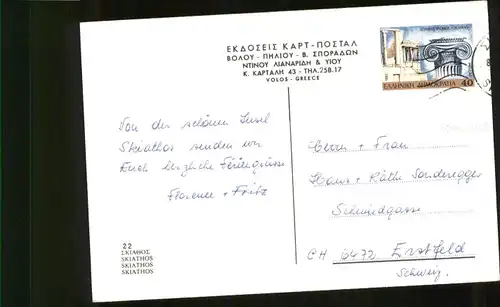 ΕΚΔΟΣΕΙΣ ΚΑΡΤ-ΠΟΣΤΑΛ
ΒΟΛΟΥ - ΠΗΛΙΟΥ - Β. ΣΠΟΡΑΔΩΝ
ΝΤΙΝΟΥ ΛΙΑΝΑΡΙΔΗ & ΥΙΟΥ
Κ. ΚΑΡΤΑΛΗ 43 - ΤΗΛ. 258.17
VOLOS - GREECE
ΕΛΛΗΝΙΚΗ ΔΗΜΟΚΡΑΤΙΑ 40
Von der schönen Insel
Skiathos senden wir
Euch herzliche Feriengrüsse
Florence + Fritz
Herrn + Frau
Hans + Käthi Sonderegger
Schmidgasse
CH 6472 Erstfeld
Schweiz.
22
ΣΚΙΑΘΟΣ
SKIATHOS
SKIATHOS
SKIATHOS